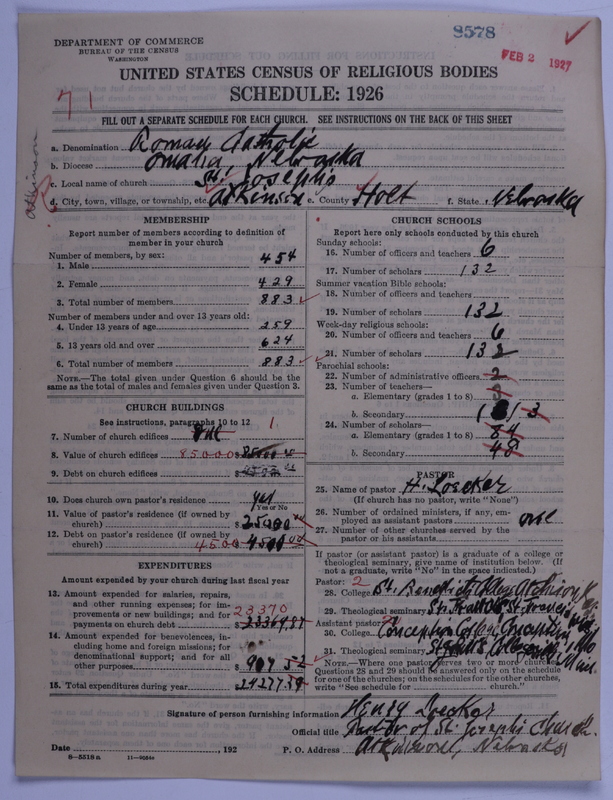 8578
FEB 2 1927
DEPARTMENT OF COMMERCE
BUREAU OF THE CENSUS
WASHINGTON
UNITED STATES CENSUS OF RELIGIOUS BODIES
SCHEDULE: 1926
71
FILL OUT A SEPARATE SCHEDULE FOR EACH CHURCH. SEE INSTRUCTIONS ON THE BACK OF THIS SHEET
Atkinson
a. Denomination Roman Catholic
b. Diocese Omaha, Nebraska
c. Local name of church St. Joseph's
d. City, town, village, or township, etc. Atkinson e. County Holt f. State Nebraska
MEMBERSHIP
Report number of members according to definition of
member in your church
Number of members, by sex:
1. Male 454
2. Female 429
3. Total number of members 883
Number of members under and over 13 years old:
4. Under 13 years of age 259
5. 13 years old and over 624
6. Total number of members 883
NOTE.—The total given under Question 6 should be the
same as the total of males and females given under Question 3.
CHURCH BUILDINGS
See instructions, paragraphs 10 to 12 1.
7. Number of church edifices one
8. Value of church edifices 85000 $85000
9. Debt on church edifices $
10. Does church own pastor's residence yes
Yes or No
11. Value of pastor's residence (if owned by
church) $25000
12. Debt on pastor's residence (if owned by
church) 4500 $4500
EXPENDITURES
Amount expended by your church during last fiscal year
13. Amount expended for salaries, repairs,
and other running expenses; for im-
provements or new buildings; and for 23370
payments on church debt $23369.87
14. Amount expended for benevolences, in-
cluding home and foreign missions; for
denominational support; and for all
other purposes $907.52
15. Total expenditures during year $24277.39
CHURCH SCHOOLS
Report here only schools conducted by this church
Sunday schools:
16. Number of officers and teachers 6
17. Number of scholars 132
Summer vacation Bible schools:
18. Number of officers and teachers
19. Number of scholars 132
Week-day religious schools:
20. Number of officers and teachers 6
21. Number of scholars 132
Parochial schools:
22. Number of administrative officers 2
23. Number of teachers—
a. Elementary (grades 1 to 8)
b. Secondary 3
24. Number of scholars—
a. Elementary (grades 1 to 8) 84
b. Secondary 48
PASTOR
25. Name of pastor H. Loecker
(If church has no pastor, write "None")
26. Number of ordained ministers, if any, em-
ployed as assistant pastors one
27. Number of other churches served by the
pastor or his assistants
If pastor (or assistant pastor) is a graduate of a college or
theological seminary, give name of institution below. (If
not a graduate, write "No" in the space indicated.)
Pastor: 2
28. College St. Benedict's College Atchison
29. Theological seminary St. Francis
Assistant pastor:
30. College Conception College, Conception, Mo
31. Theological seminary St. Paul's
NOTE.—Where one pastor serves two or more churches,
Questions 28 and 29 should be answered only on the schedule
for one of the churches; on the schedules for the other churches,
write "See schedule for church."
Signature of person furnishing information Henry Loecker
Official title Pastor of St. Joseph's Church
Date , 192 P. O. Address Atkinson, Nebraska
6—5518a 11—9264